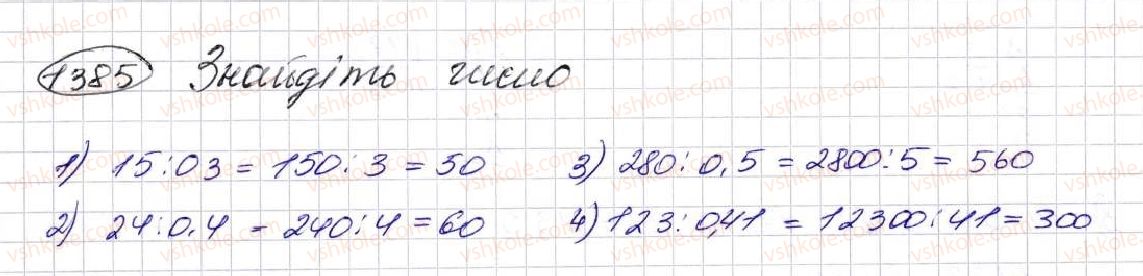 1385 Знайдіть число
1) 15:03 = 150:3 = 50
2) 24:0,4 = 240:4 = 60
3) 280:0,5 = 2800:5 = 560
4) 123:0,41 = 12300:41 = 300